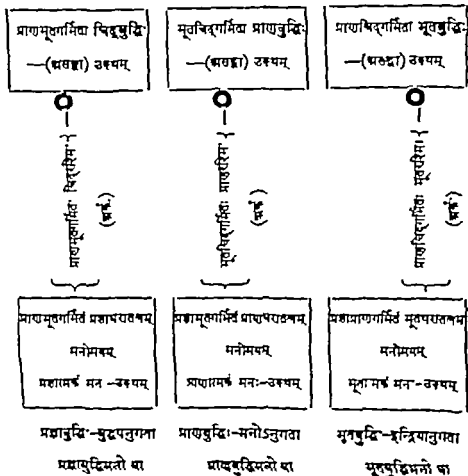 प्राणभूतगर्भिता चिद्बुद्धिः
—(असङ्गा) उक्थम्
भूतचिद्गर्भिता प्राणबुद्धिः
—(असङ्गा) उक्थम्
प्राणचिद्गर्भिता भूतबुद्धिः
—(असङ्गा) उक्थम्
प्राणभूतगर्भितः चिद्रश्मिः
(अर्कः)
भूतचिद्गर्भितः प्राणरश्मिः
(अर्कः)
प्राणचिद्गर्भितः भूतरश्मिः
(अर्कः)
प्राणभूतगर्भितं प्रज्ञापरातत्त्वम्
मनोमयम्
प्रज्ञात्मकं मनः-उक्थम्
प्रज्ञाभूतगर्भितं प्राणपरातत्त्वम्
मनोमयम्
प्राणात्मकं मनः-उक्थम्
प्रज्ञाप्राणगर्भितं भूतपरातत्त्वम्
मनोमयम्
भूतात्मकं मनः-उक्थम्
प्रज्ञाबुद्धिः-बुद्ध्यनुगता
प्रज्ञाबुद्धिमतो वा
प्राणबुद्धिः-मनोऽनुगता
प्राणबुद्धिमतो वा
भूतबुद्धिः-इन्द्रियानुगता
भूतबुद्धिमतो वा